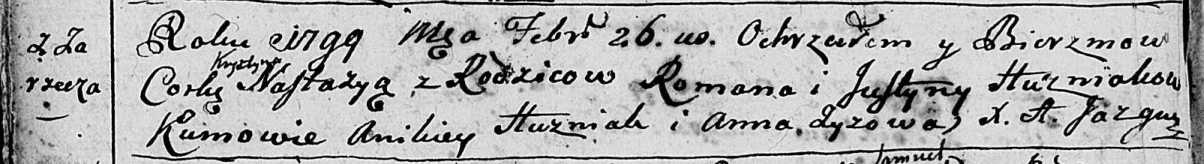 z Za
rzecza
Roku 1799 Mca Febr 26. ws. Ochrzciłem y Bierzmow
Krystyna
Corkę Nastazyą z Rodzicow Romana i Justyny Huzniakow
Kumowie Anikiey Huzniak i Anna Zyzowa, X. A. Jazgu